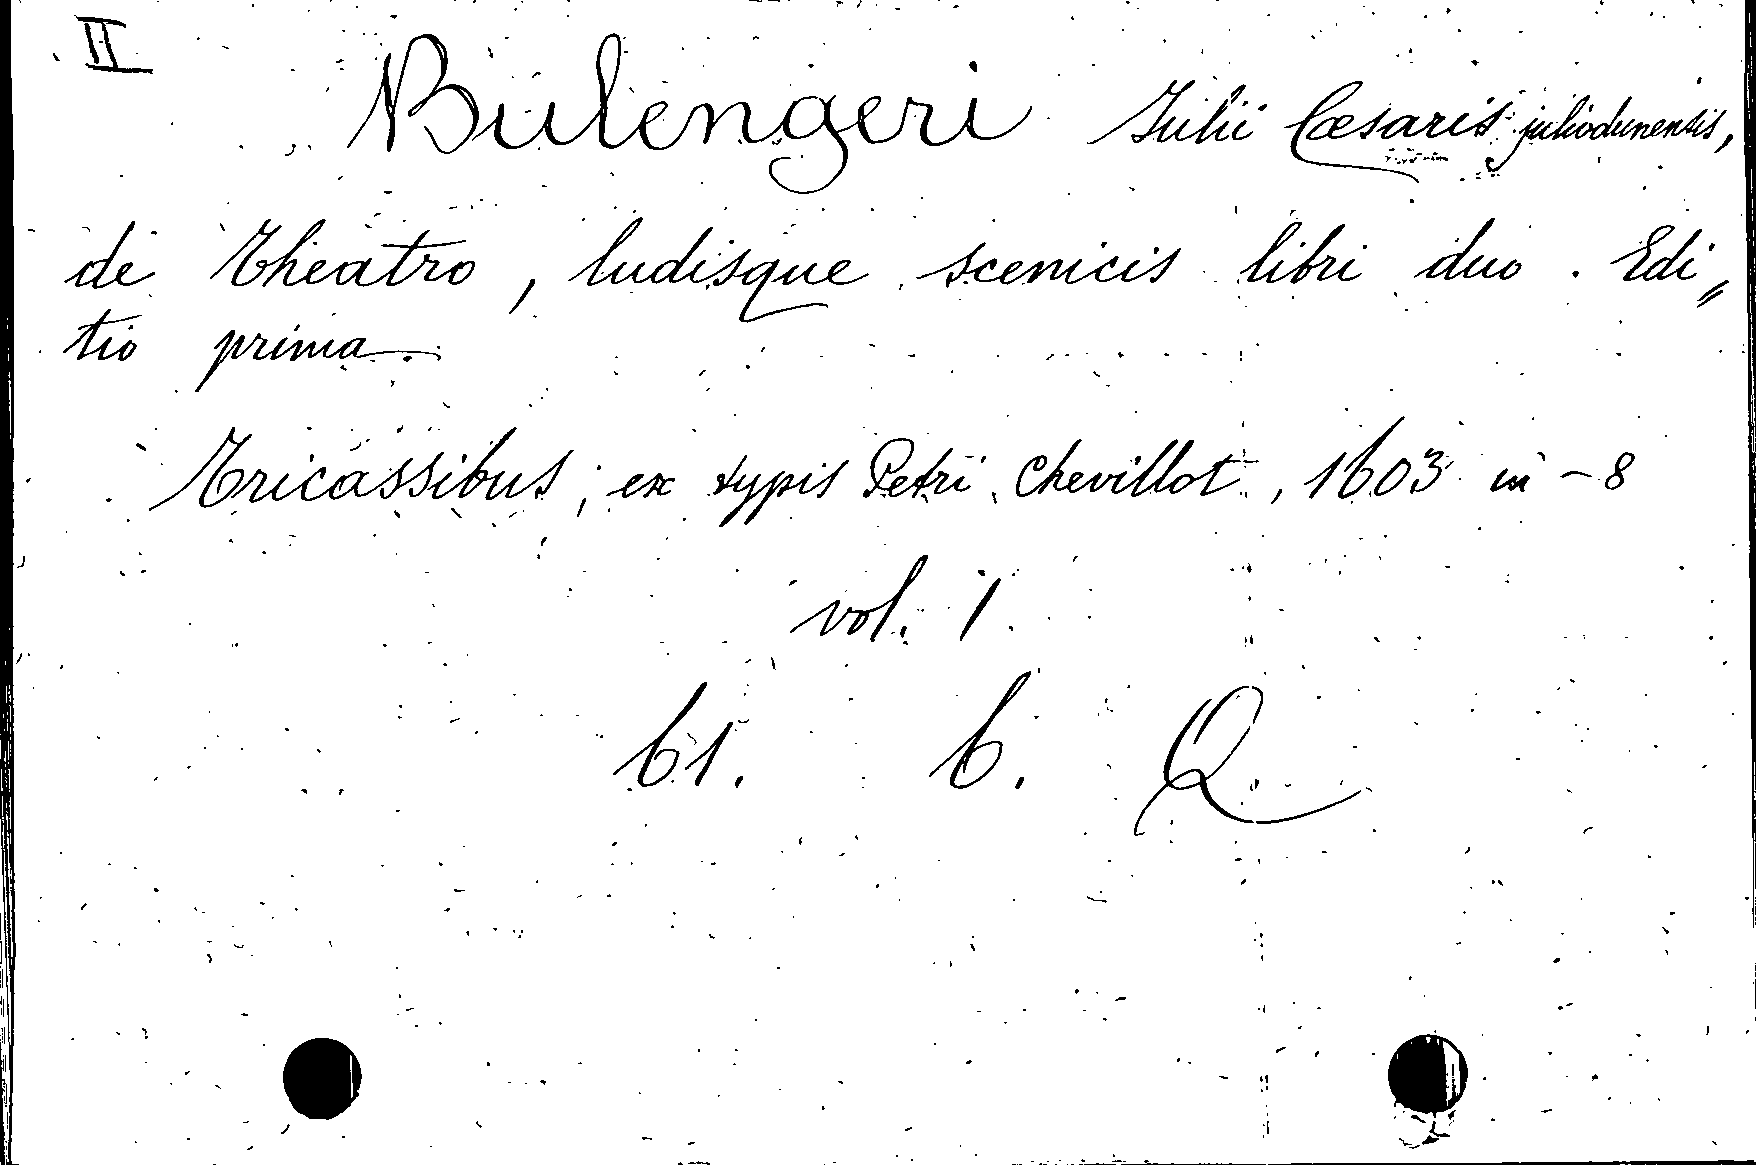 II
Bulengeri Julii Cæsaris juliodunensis,
de Theatro, ludisque scenicis libri duo. Edi„
tio prima.
Tricassibus, ex typis Petri Chevillot, 1603 in-8
vol. 1.
61. 6. Q.